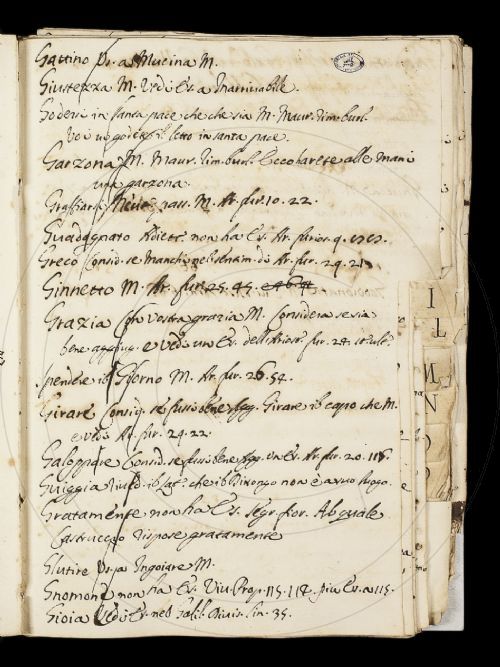 Gattino V. a Mucina M.
Giustezza M. Vedi Es. a Inarrivabile.
Godersi in santa pace che che sia M. Maur. rim. burl.
Voi vi godete il letto in santa pace.
Garzona M. Maur. rim. burl. Ecco harete alle mani
una garzona.
Graffiarsi Neut. pass. M. Ar. fur. 10. 22.
Guadagnato Adiett. non ha Es. Ar. furios. 9.
Greco Consid. se manchi nel Ar. fur. 24.
Ginnetto M. Ar. fur. 25. 45.
Grazia Con vostra grazia M. Considera se sia
bene aggiug. e vedi un Es. dell'Ariost. fur. 24.
spendere il Giorno M. Ar. fur. 26. 54.
Girare Consid. se fussi bene agg. Girare il capo che M.
e vedi Ar. fur. 24. 22.
Galoppare Consid. se fussi bene agg. un Es. Ar. fur. 20. 118.
Guiggia che il non è a suo luogo.
Gratamente non ha Es. Segr. fior. Al quale
Castruccio rispose gratamente
Glutire V. a Ingoiare M.
Gnomone non ha Es. Viv. Prop. 115. 112. più Es. a 115.
Gioia Vedi Es. nel Galil. 35.
I
T
M
N